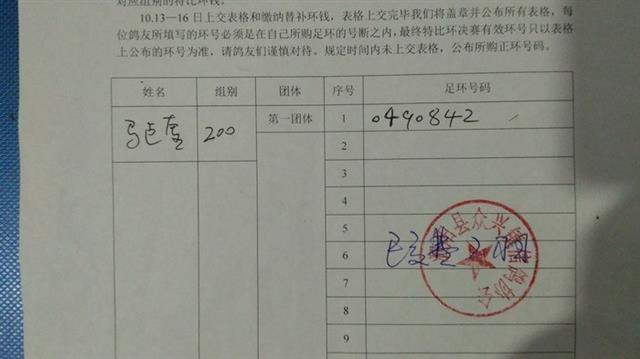 对应组别的特比环钱。
10.13—16日上交表格和缴纳替补环钱，表格上交完毕我们将盖章并公布所有表格，每
位鸽友所填写的环号必须是在自己所购足环的号断之内，最终特比环决赛有效环号只以表格
上公布的环号为准，请鸽友们谨慎对待。规定时间内未上交表格，公布所购正环号码。
姓名 组别 团体 序号 足环号码
马占奎 200 第一团体 1 0490842
2
3
4
5
6 已交
7
8
9
县众兴 鸽协会